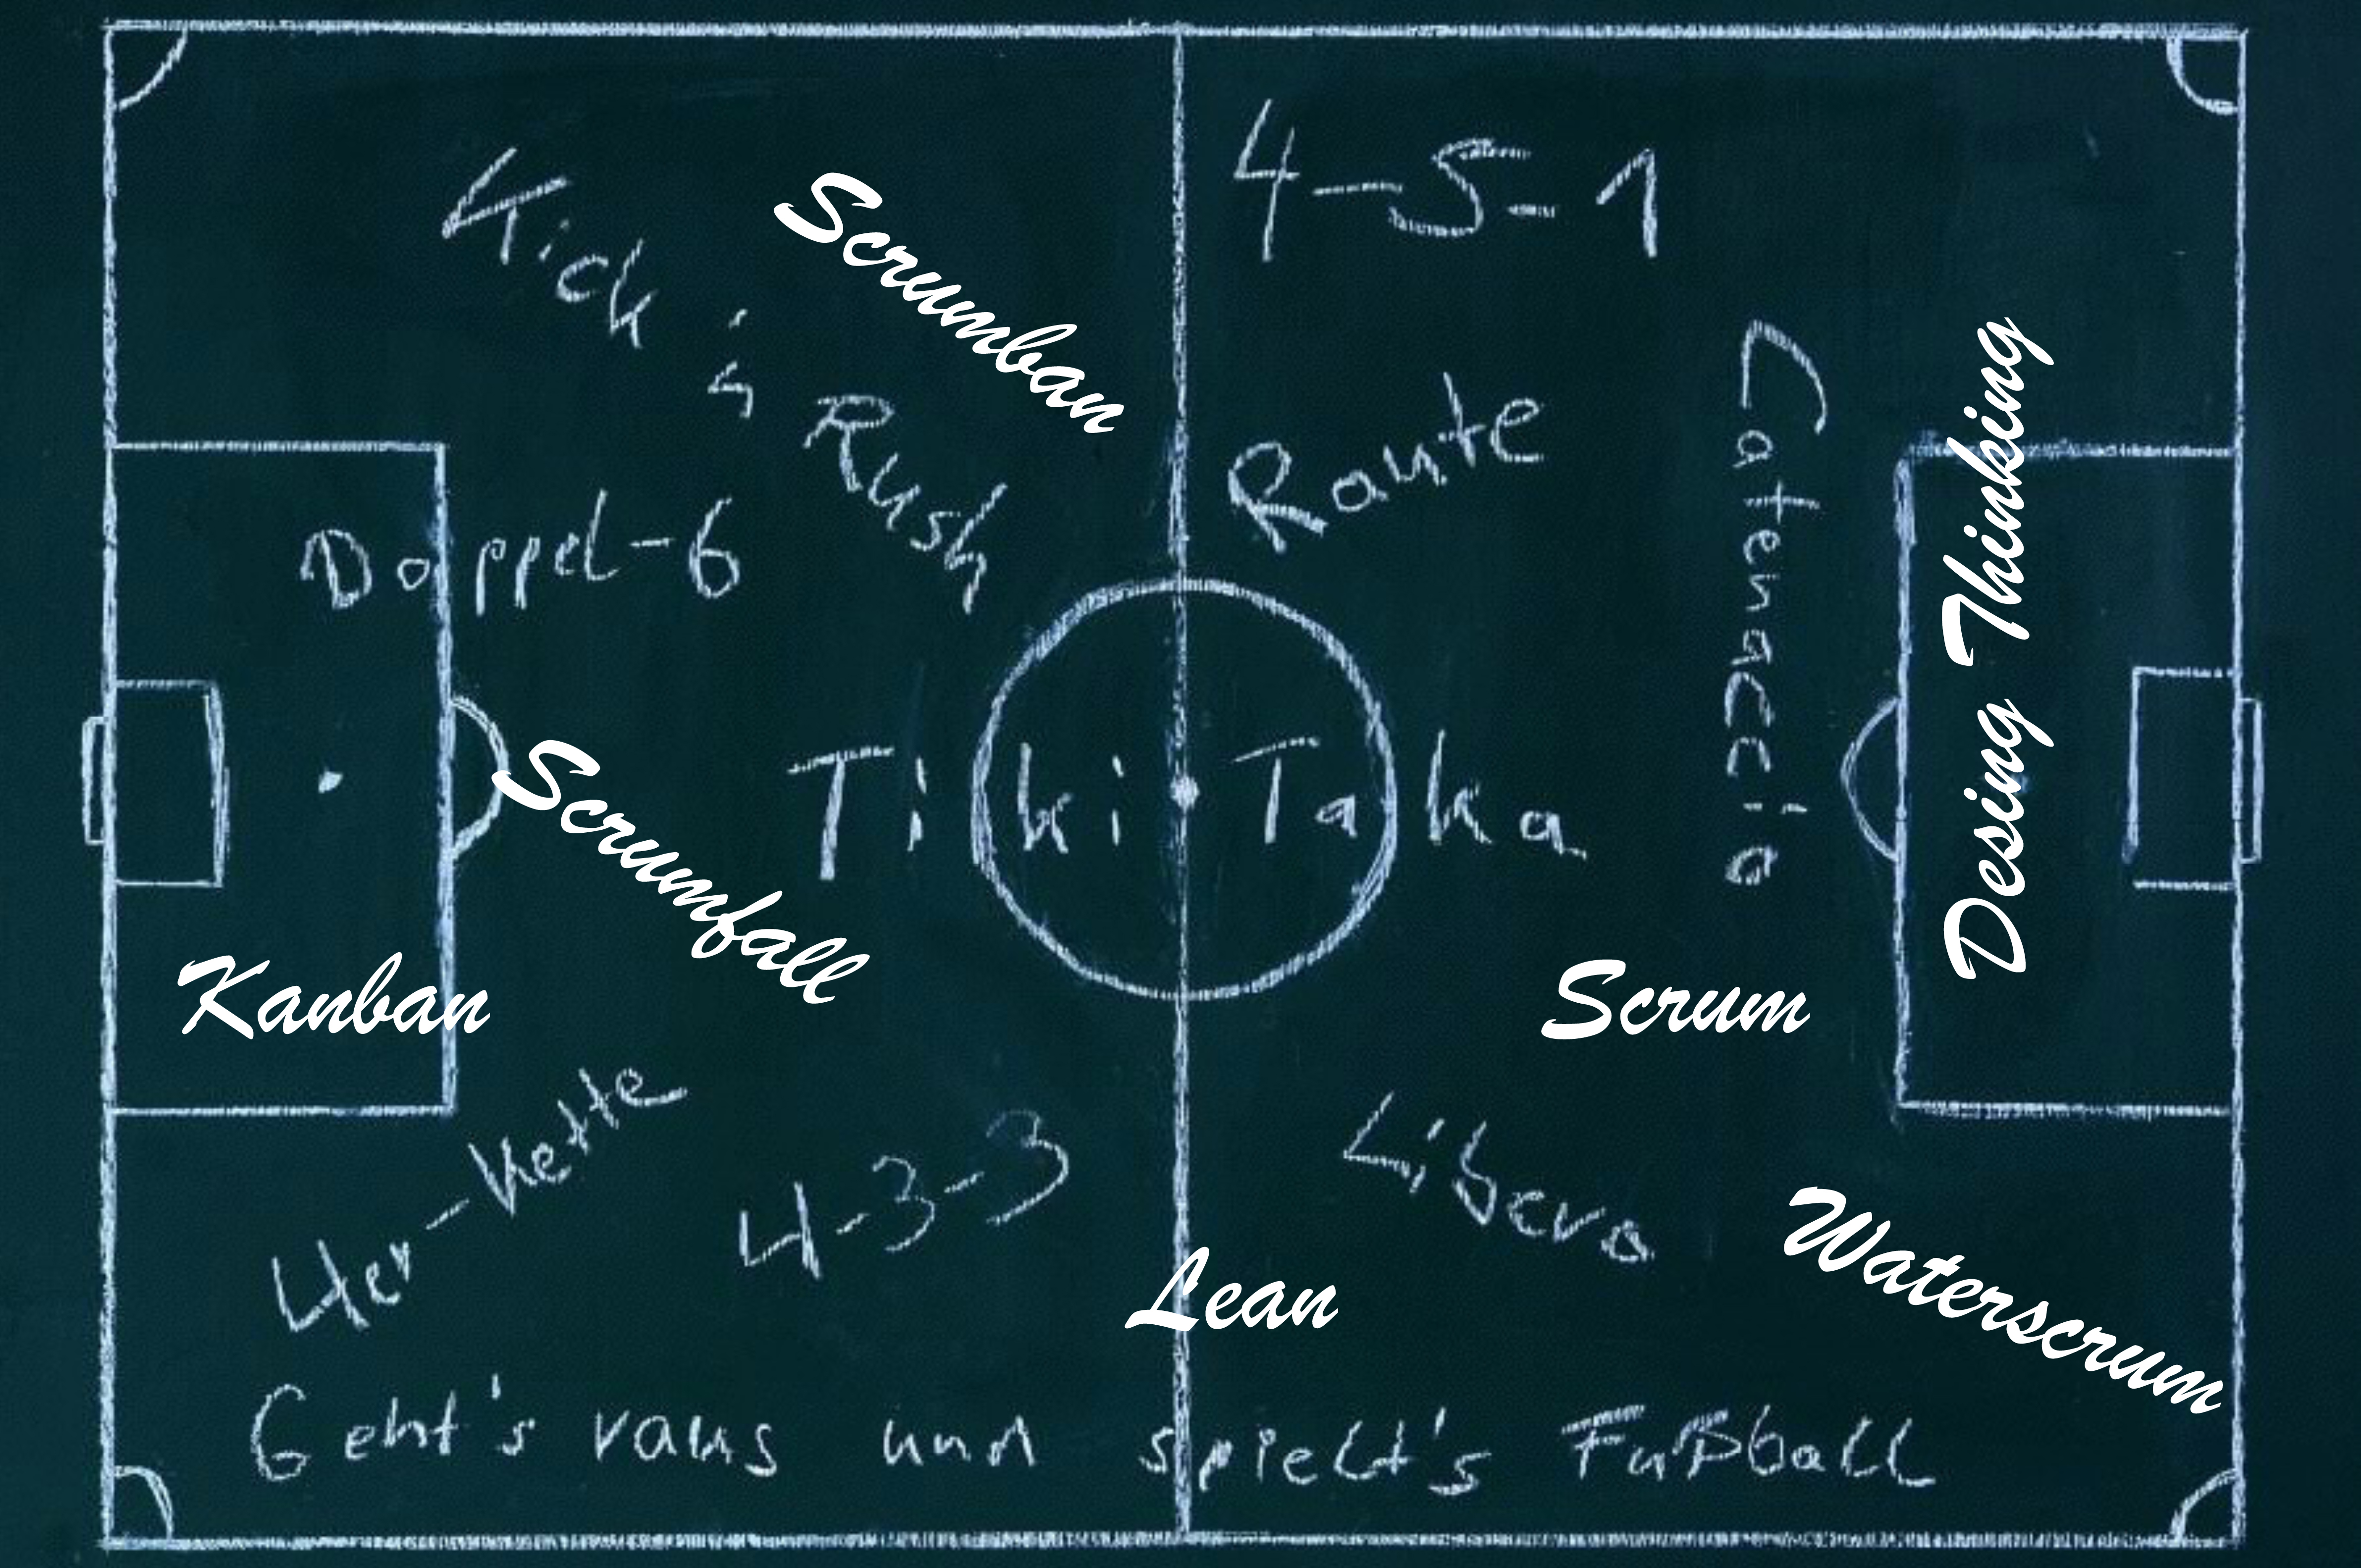 4-5-1
Kick 'n Rush
Scrumban
Raute
Catenaccio
Desing Thinking
Doppel-6
Tiki Taka
Scrumfall
Kanban
Scrum
4er-Kette
4-3-3
Libero
Lean
Waterscrum
Geht's raus und spielt's Fußball